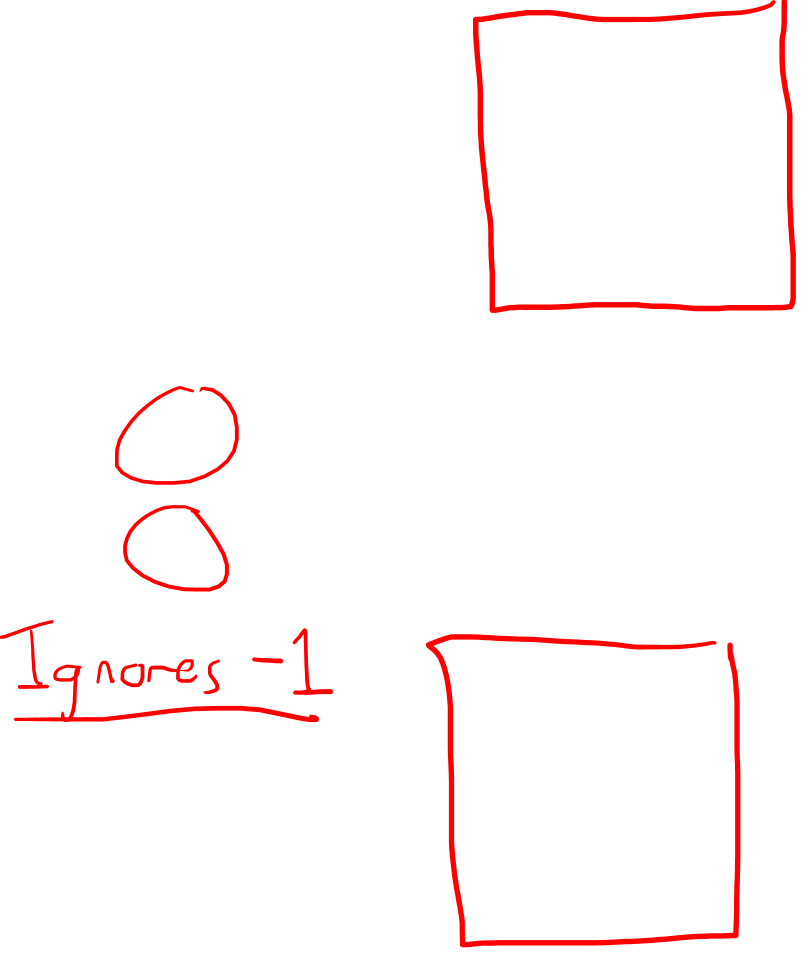 Ignores -1